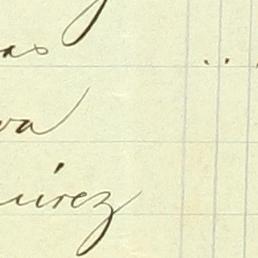 as
va
uirez